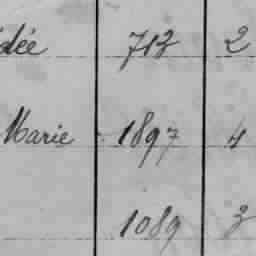 dée 713 2
Marie 1897 4
1089 3